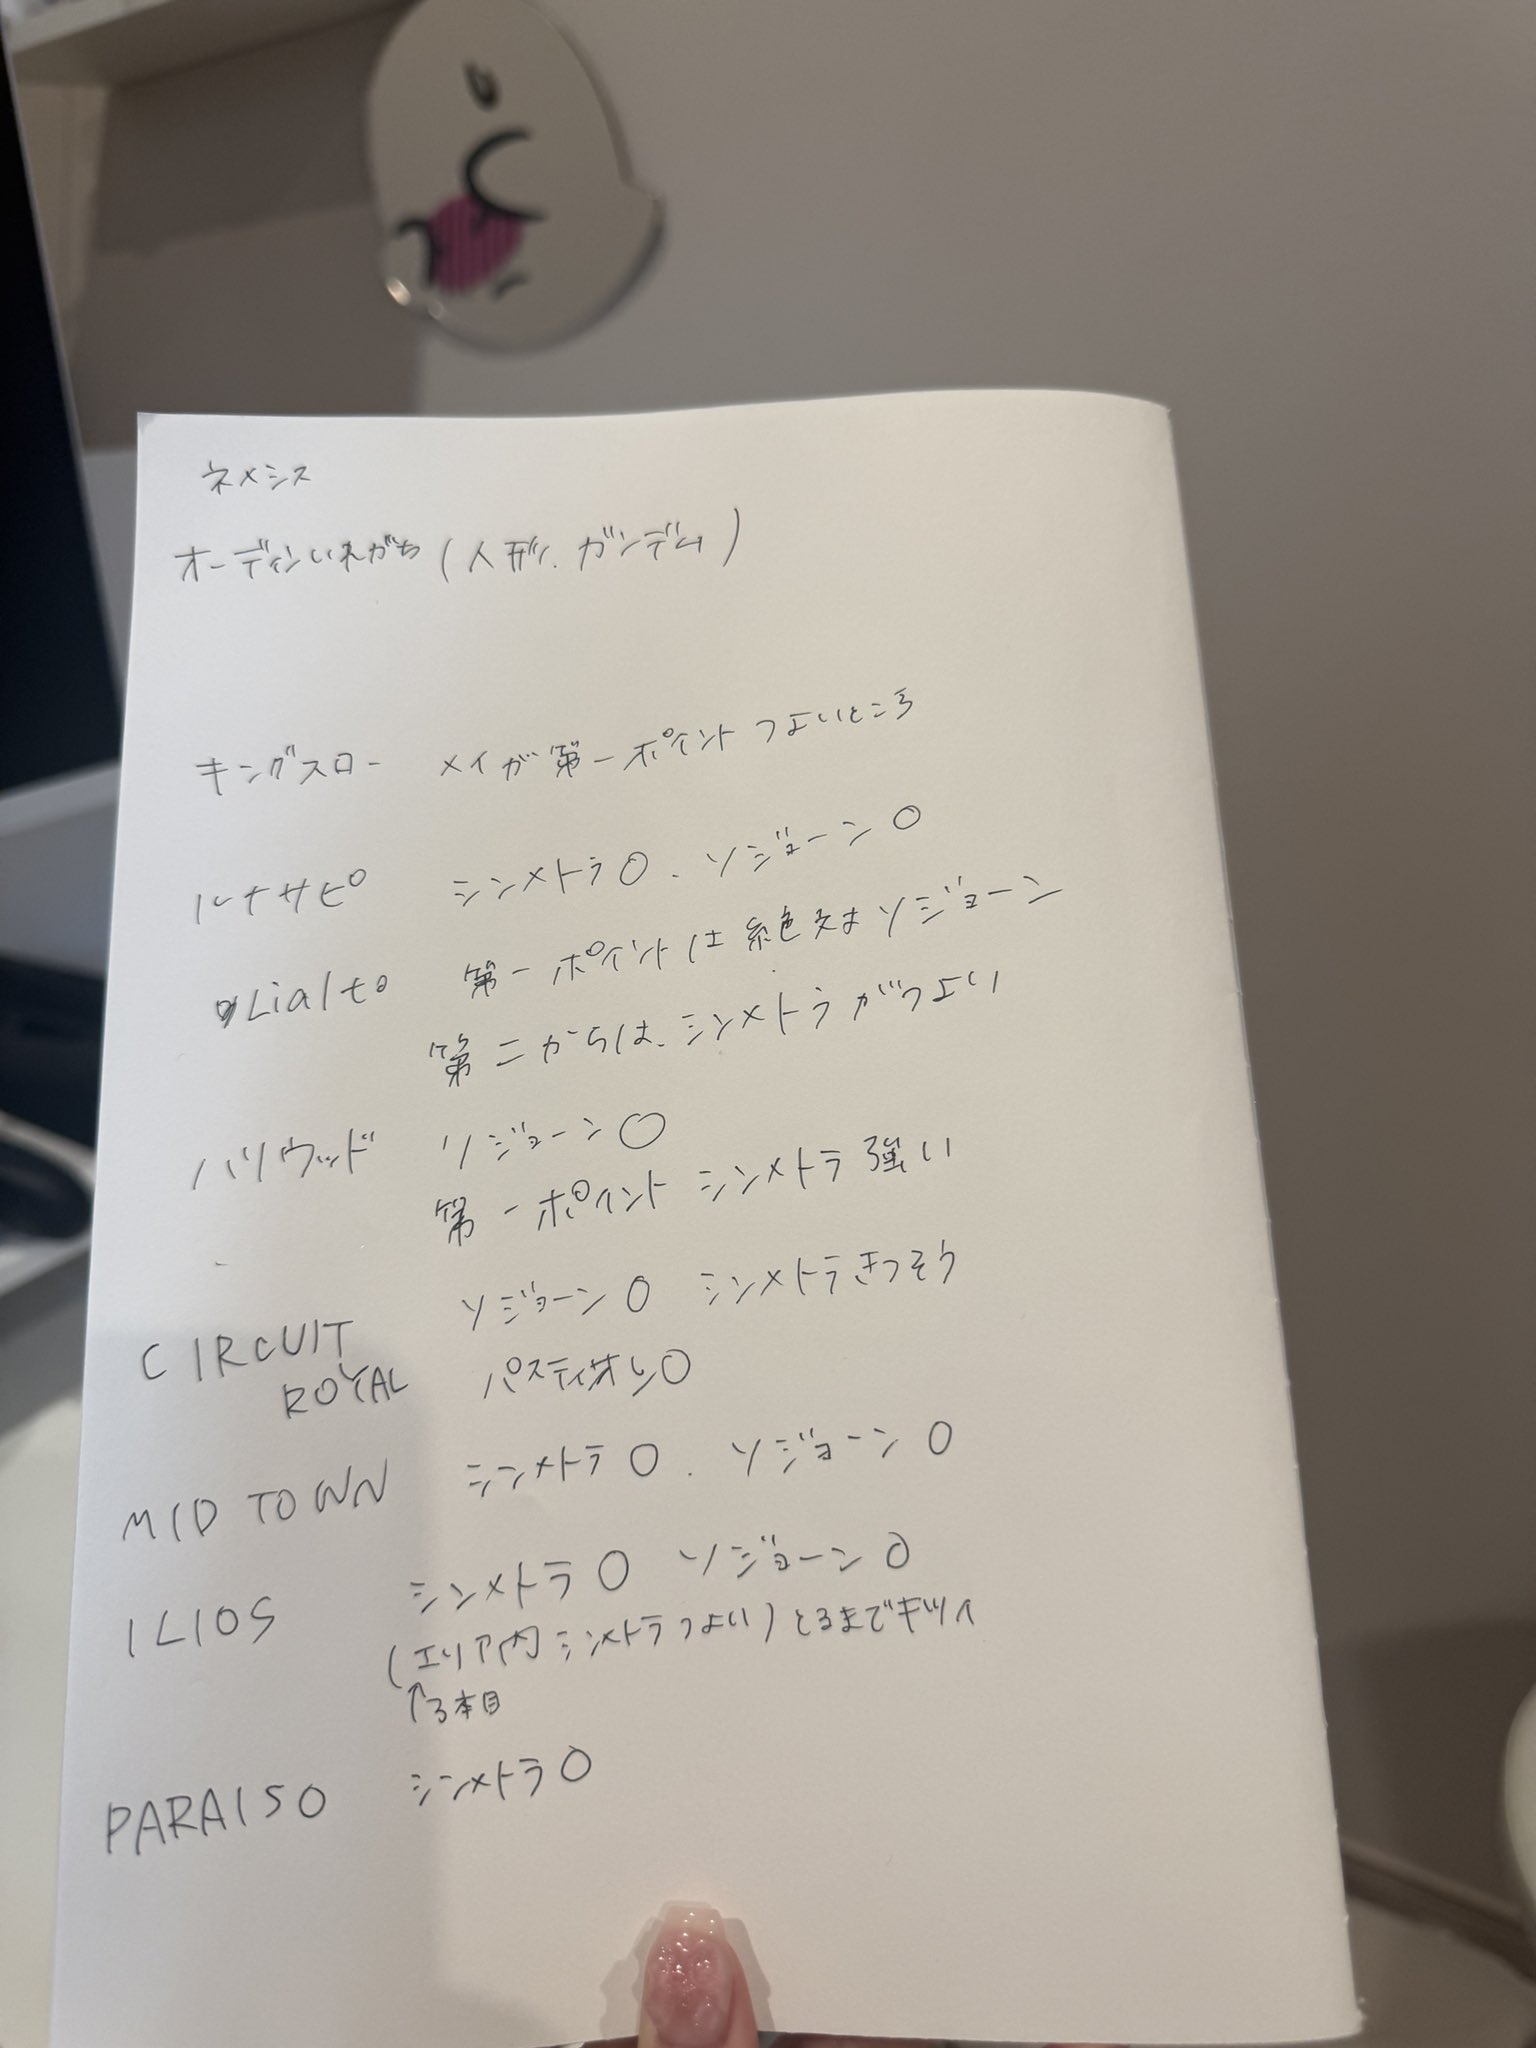 ネメシス
オーディンいれがち(人形、ガンデム)
キングスロー メイが第一ポイントつよいところ
ルナサピ シンメトラ○、ソジョーン○
Lialto 第一ポイントは絶対ソジョーン
第二からは、シンメトラがつよい
ハリウッド ソジョーン○
第一ポイント シンメトラ強い
CIRCUIT ソジョーン○ シンメトラきつそう
ROYAL バスティオン○
MIDTOWN シンメトラ○、ソジョーン○
ILIOS シンメトラ○ ソジョーン○
(エリア内シンメトラつよい)とるまでキツイ
↑3本目
PARAISO シンメトラ○